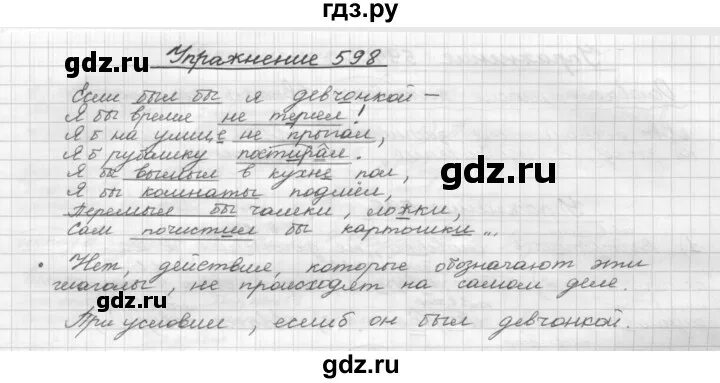 гдз.ру
gdz.ru
Упражнение 598
gdz.ru
Если был бы я девчонкой —
Я бы время не терял!
Я б на улице не прыгал,
Я б рубашку постирал.
Я бы вымыл в кухне пол,
gdz.ru
Я бы комнаты подмёл,
Перемыл бы чашки, ложки,
Сам почистил бы картошки...
Нет, действия, которые обозначают эти
глаголы, не происходят на самом деле.
gdz.ru
При условии, еслиб он был девчонкой.
gdz.ru